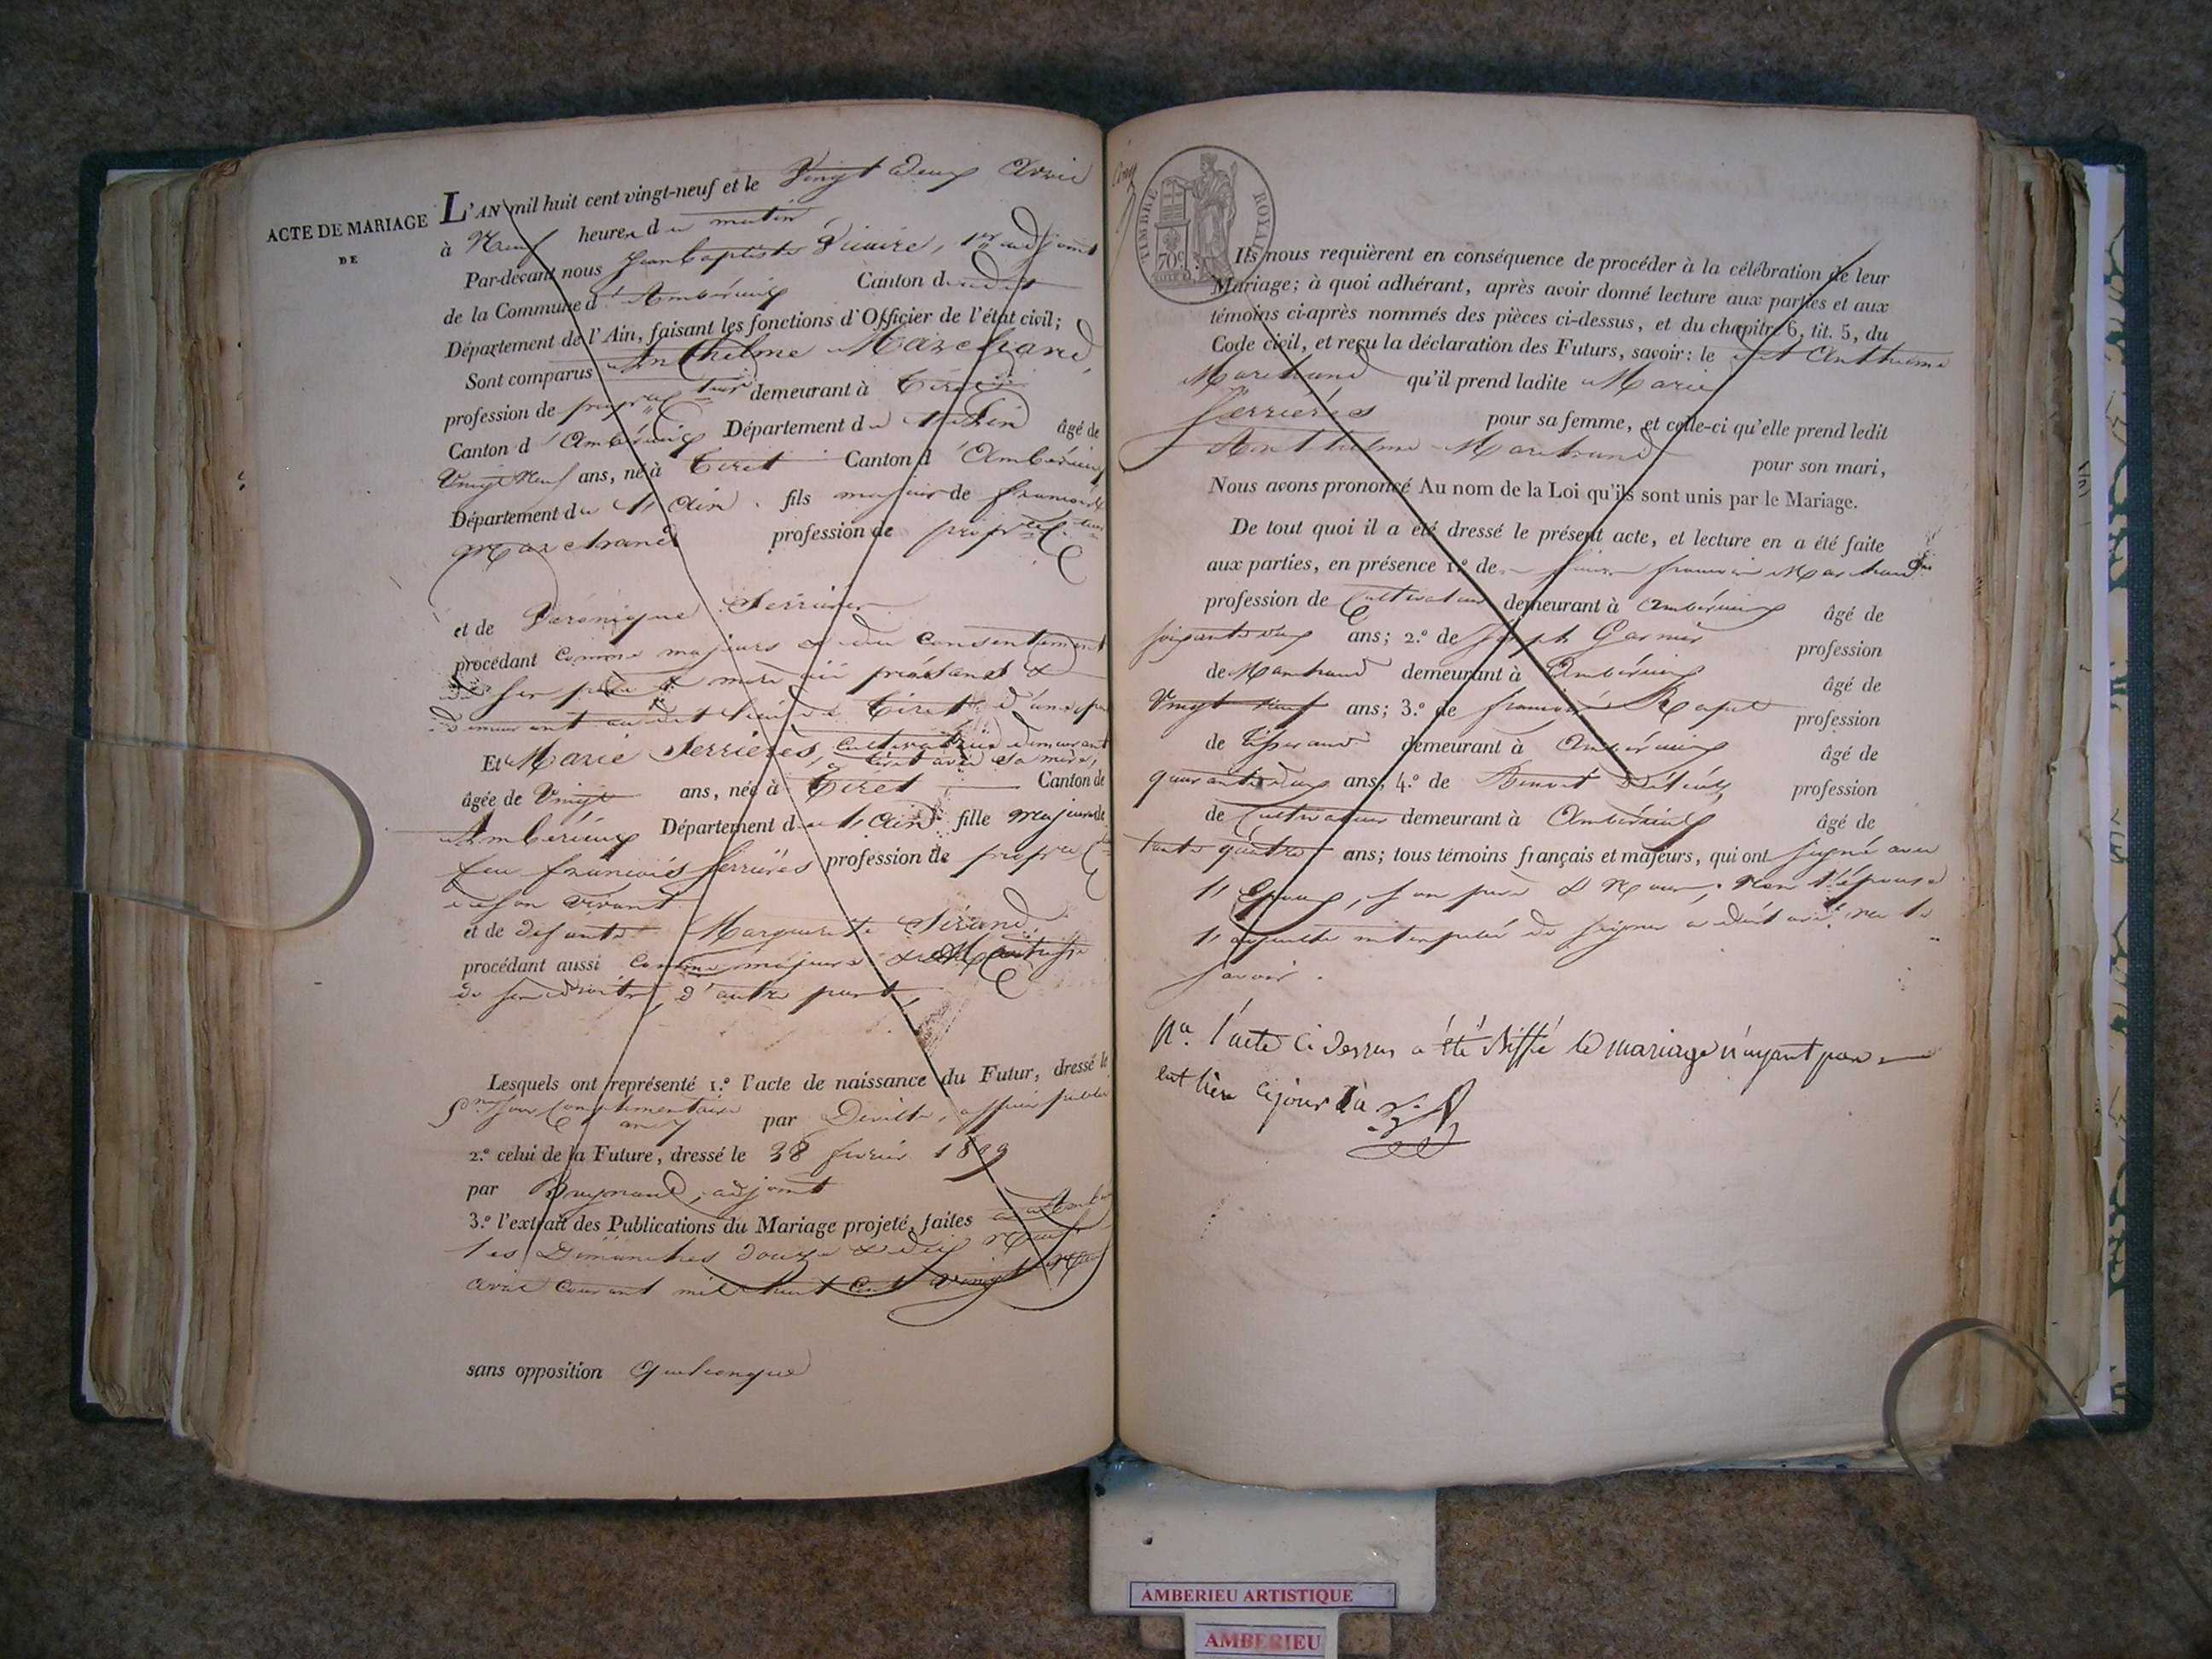 ACTE DE MARIAGE
DE
L'AN mil huit cent vingt-neuf et le Vingt deux Avril
à Neuf heures du matin
Par-devant nous Jean Baptiste Vicaire, 1er adjoint
de la Commune d'Ambérieux Canton dudit
Département de l'Ain, faisant les fonctions d'Officier de l'état civil;
Sont comparus Anthelme Marchand,
profession de demeurant à Tiret
Canton d'Ambérieux Département de l'Ain âgé de
Vingt neuf ans, né à Tiret Canton d'Ambérieux
Département de l'Ain. fils majeur de francois
Marchand profession de
et de Véronique
procédant comme majeurs & du consentement
de son père & mère ici présents &
demeurant audit lieu de Tiret d'une part
Et Marie Serrières, cultivatrice demeurant
à Tiret avec sa mère,
âgée de Vingt ans, née à Tiret Canton de
Ambérieux Département de l'Ain fille majeure de
feu francois Serrières profession de
de son vivant
et de defunte Marguerite
procédant aussi comme majeure & Maitresse
de ses droits, d'autre part,
Lesquels ont représenté 1.º l'acte de naissance du Futur, dressé le
jour complémentaire an 7 par officier public
2.º celui de la Future, dressé le 28 fevrier 1809
par adjoint
3.º l'extrait des Publications du Mariage projeté, faites
les Dimanches douze & dix Neuf
avril courant mil huit cent vingt Neuf
sans opposition Quelconque
cinq
TIMBRE ROYAL
70c.
Ils nous requièrent en conséquence de procéder à la célébration de leur
Mariage; à quoi adhérant, après avoir donné lecture aux parties et aux
témoins ci-après nommés des pièces ci-dessus, et du chapitre 6, tit. 5, du
Code civil, et reçu la déclaration des Futurs, savoir: le dit Anthelme
Marchand qu'il prend ladite Marie
Serrières pour sa femme, et celle-ci qu'elle prend ledit
Anthelme Marchand pour son mari,
Nous avons prononcé Au nom de la Loi qu'ils sont unis par le Mariage.
De tout quoi il a été dressé le présent acte, et lecture en a été faite
aux parties, en présence 1.º de francois Marchand
profession de Cultivateur demeurant à Ambérieux âgé de
soixante deux ans; 2.º de Joseph Garnier profession
de Marchand demeurant à Ambérieux âgé de
Vingt neuf ans; 3.º de francois profession
de Tisserand demeurant à Ambérieux âgé de
quarante deux ans, 4.º de Benoit profession
de Cultivateur demeurant à Ambérieux âgé de
trente quatre ans; tous témoins français et majeurs, qui ont signé avec
l'Epoux, son père & Nous, Non l'épouse
laquelle interpellée de signer a dit avec ne le
savoir.
Na. l'acte ci dessus a été biffé le mariage n'ayant pas
eut lieu ce jour là
AMBERIEU ARTISTIQUE
AMBERIEU